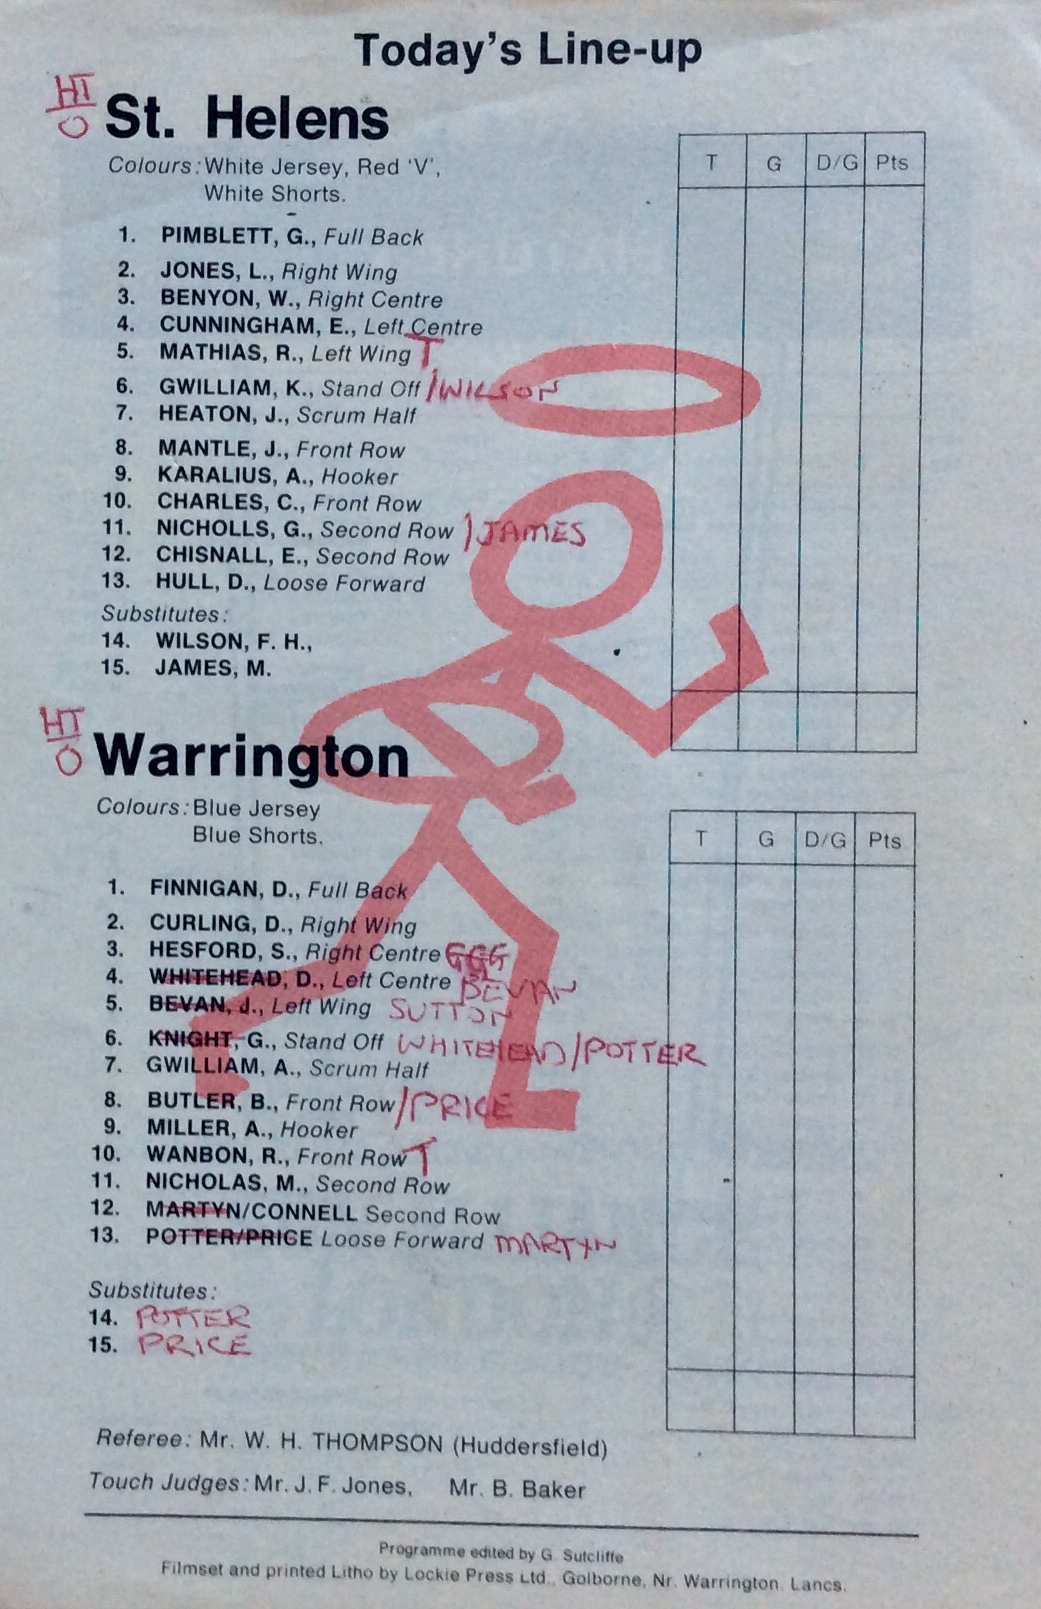 Today's Line-up
HT
0
St. Helens
Colours: White Jersey, Red 'V',
White Shorts.
T G D/G Pts
1. PIMBLETT, G., Full Back
2. JONES, L., Right Wing
3. BENYON, W., Right Centre
4. CUNNINGHAM, E., Left Centre
5. MATHIAS, R., Left Wing T
6. GWILLIAM, K., Stand Off /WILSON
7. HEATON, J., Scrum Half
8. MANTLE, J., Front Row
9. KARALIUS, A., Hooker
10. CHARLES, C., Front Row
11. NICHOLLS, G., Second Row /JAMES
12. CHISNALL, E., Second Row
13. HULL, D., Loose Forward
Substitutes:
14. WILSON, F. H.,
15. JAMES, M.
HT
0
Warrington
Colours: Blue Jersey
Blue Shorts.
T G D/G Pts
1. FINNIGAN, D., Full Back
2. CURLING, D., Right Wing
3. HESFORD, S., Right Centre GGG
4. WHITEHEAD, D., Left Centre BEVAN
5. BEVAN, J., Left Wing SUTTON
6. KNIGHT, G., Stand Off WHITEHEAD/POTTER
7. GWILLIAM, A., Scrum Half
8. BUTLER, B., Front Row /PRICE
9. MILLER, A., Hooker
10. WANBON, R., Front Row T
11. NICHOLAS, M., Second Row
12. MARTYN/CONNELL Second Row
13. POTTER/PRICE Loose Forward MARTYN
Substitutes:
14. POTTER
15. PRICE
Referee: Mr. W. H. THOMPSON (Huddersfield)
Touch Judges: Mr. J. F. Jones, Mr. B. Baker
Programme edited by G. Sutcliffe
Filmset and printed Litho by Lockie Press Ltd., Golborne, Nr. Warrington, Lancs.